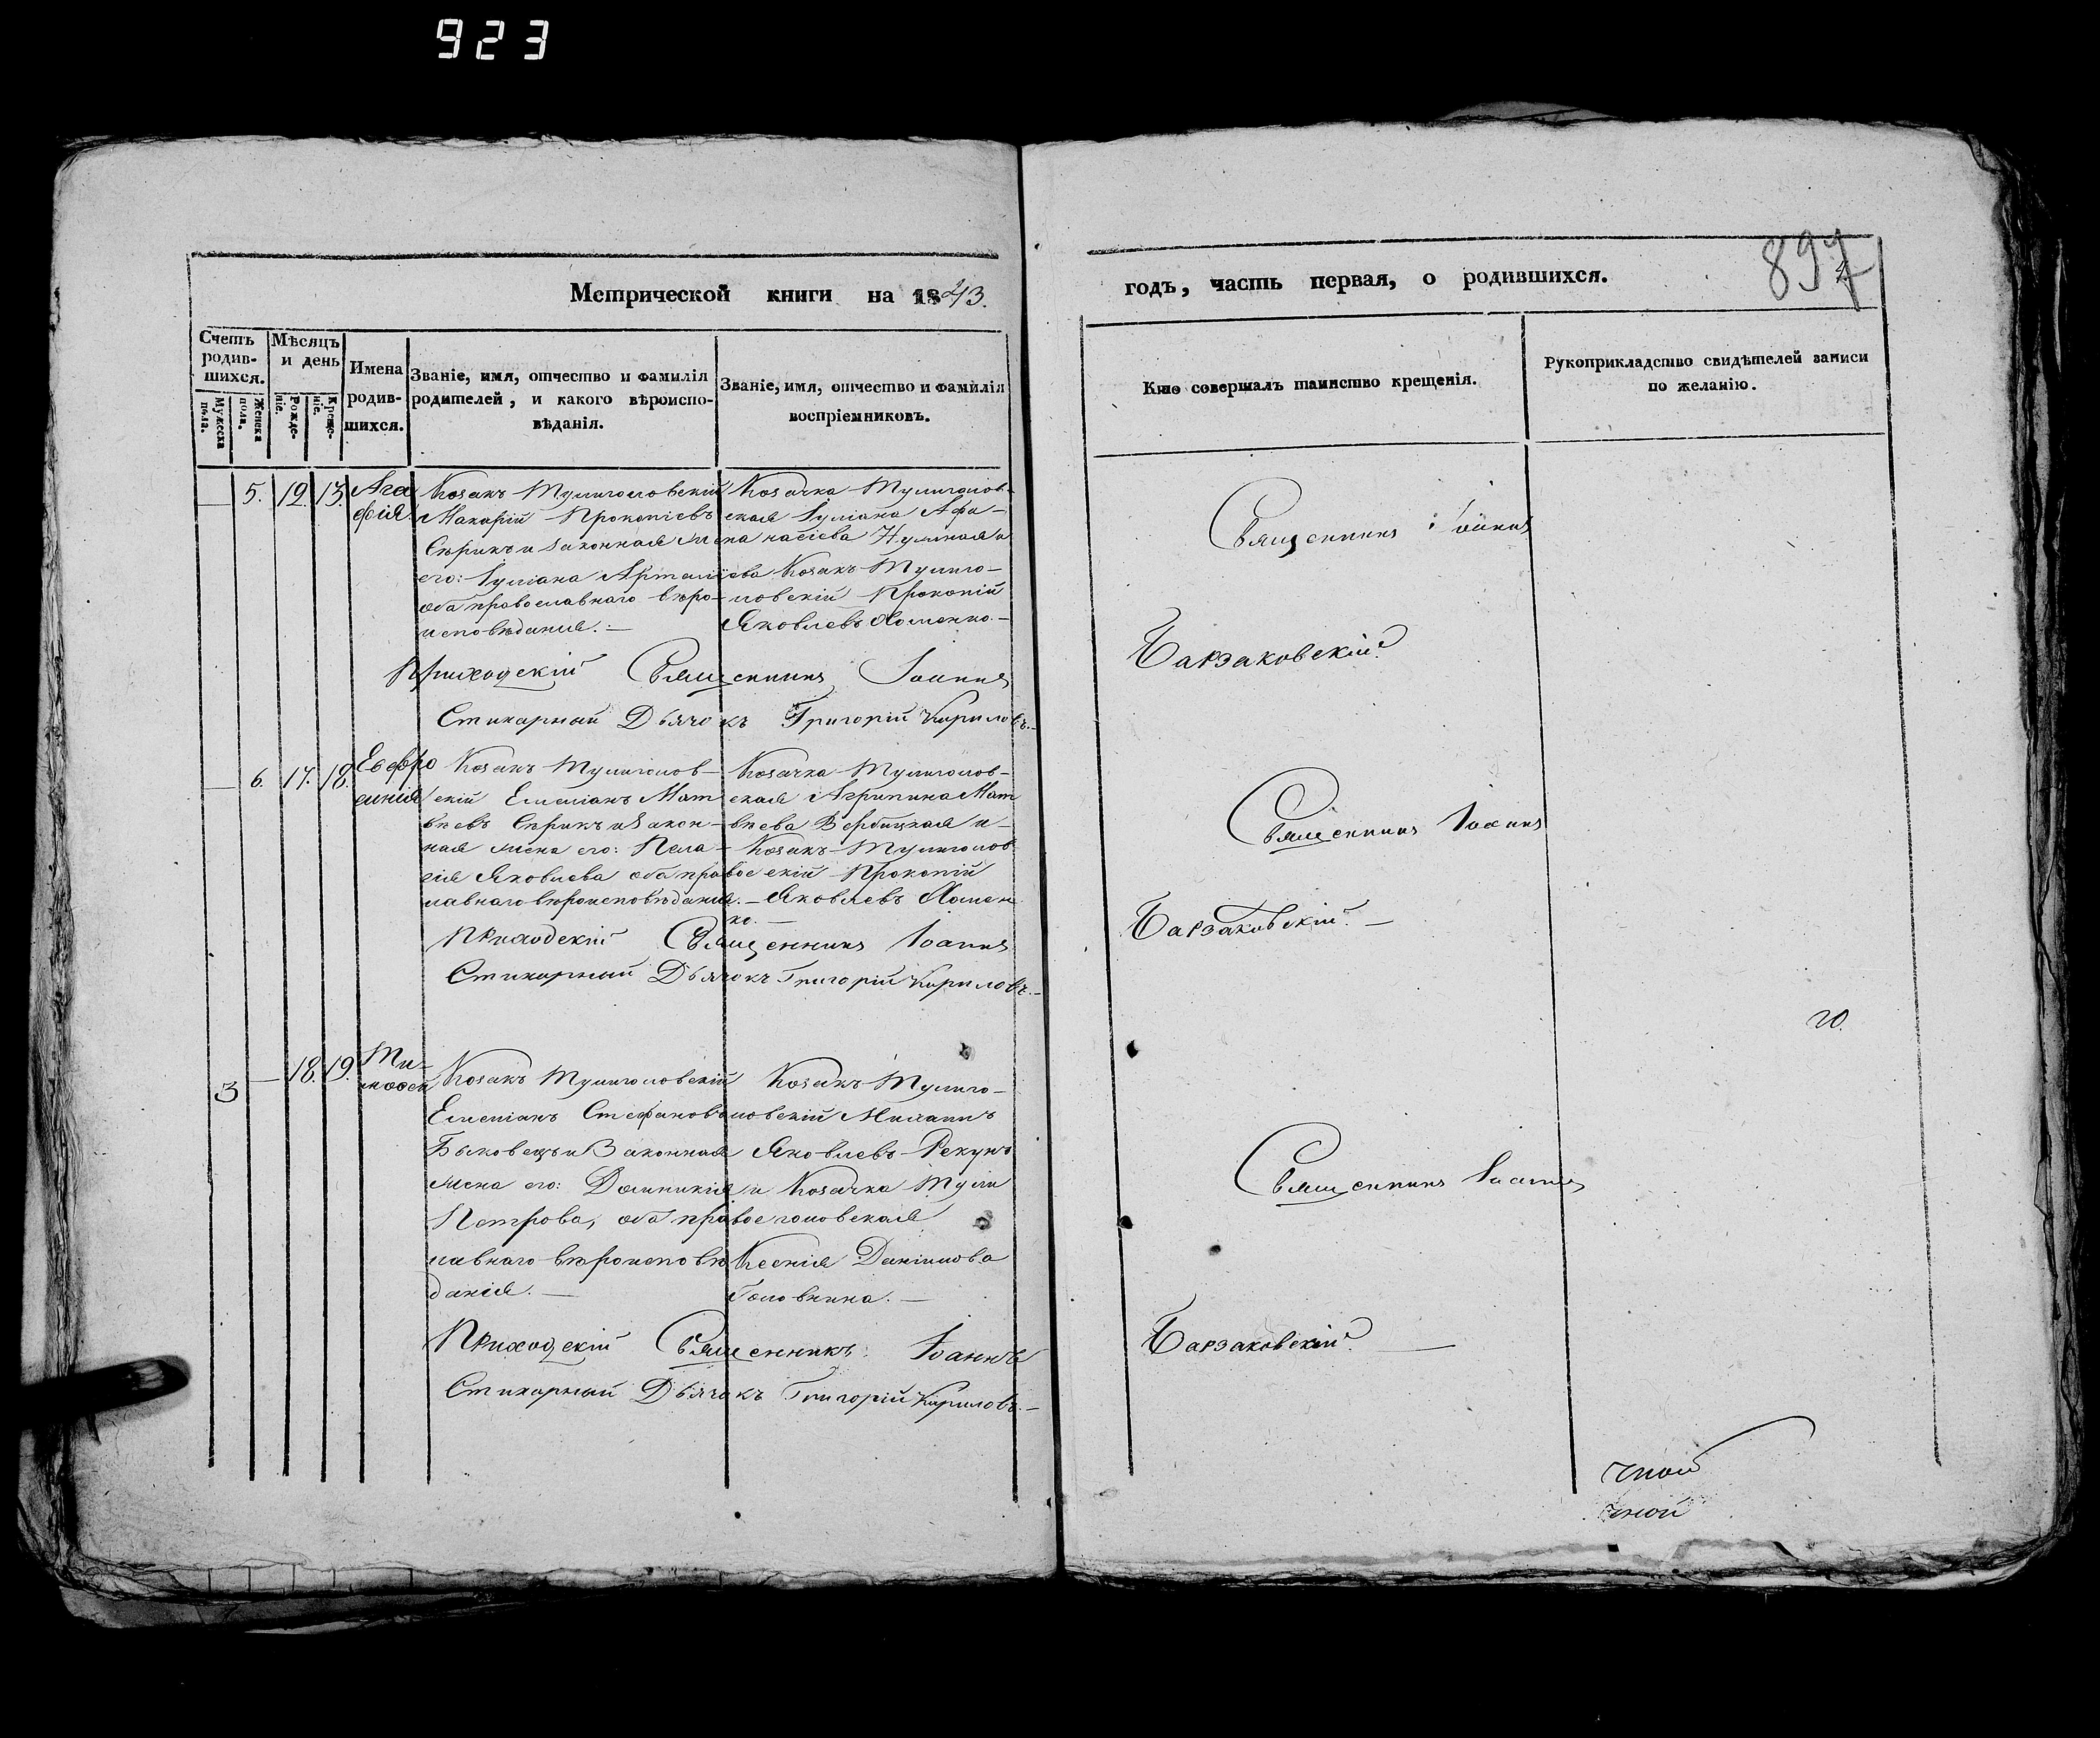 923
Метрической книги на 1843.
годъ, часть первая, о родившихся.
897
Счетъ родив-шихся.
Мужеска пола.
Женска пола.
Мѣсяцъ и день
Рожде-ніе.
Креще-ніе.
Имена родив-шихся.
Званіе, имя, отчество и фамилія
родителей, и какого вѣроиспо-
вѣданія.
Званіе, имя, отчество и фамилія
воспріемниковъ.
Кто совершалъ таинство крещенія.
Рукоприкладство свидѣтелей записи
по желанію.
— 5. 12. 13. Ага
фія.
Козакъ Тулиголовскій
Макарій Прокопіевъ
Сѣрикъ и законная жена
его: Іуліана
оба православнаго вѣро-
исповѣданія. —
Козачка Тулиголов-
ская Іуліана Афа-
насіева и
Козакъ Тулиго-
ловскій Прокопій
Яковлевъ Хоменко. —
Священникъ Іоаннъ
Барзаковскій.
Приходскій Священникъ Іоаннъ
Стихарный Дьячокъ Григорій Кириловъ. —
— 6. 17. 18. Евфро
синія
Козакъ Тулиголов-
скій Емеліанъ Мат
вѣевъ Сѣрикъ и закон-
ная жена его: Пела-
гія Яковлева оба правос
лавнаго вѣроисповѣданія. —
Козачка Тулиголов-
ская Агрипина Мат
вѣева Вербицкая и
Козакъ Тулиголов
скій Прокопій
Яковлевъ Хомен
ко. —
Священникъ Іоаннъ
Барзаковскій. —
Приходскій Священникъ Іоаннъ
Стихарный Дьячокъ Григорій Кириловъ. —
20.
3 — 18. 19. Ти-
моѳей
Козакъ Тулиголовскій
Емеліанъ Стефановъ
Быковецъ и Законная
жена его: Домникія
Петрова, оба правос
лавнаго вѣроисповѣ
данія. —
Козакъ Тулиго-
ловскій Михаилъ
Яковлевъ Рекунъ
и Козачка Тули
головская
Ксенія Даніилова
Головкина. —
Священникъ Іоаннъ
Барзаковскій. —
Приходскій Священникъ Іоаннъ
Стихарный Дьячокъ Григорій Кириловъ. —
чной
чной